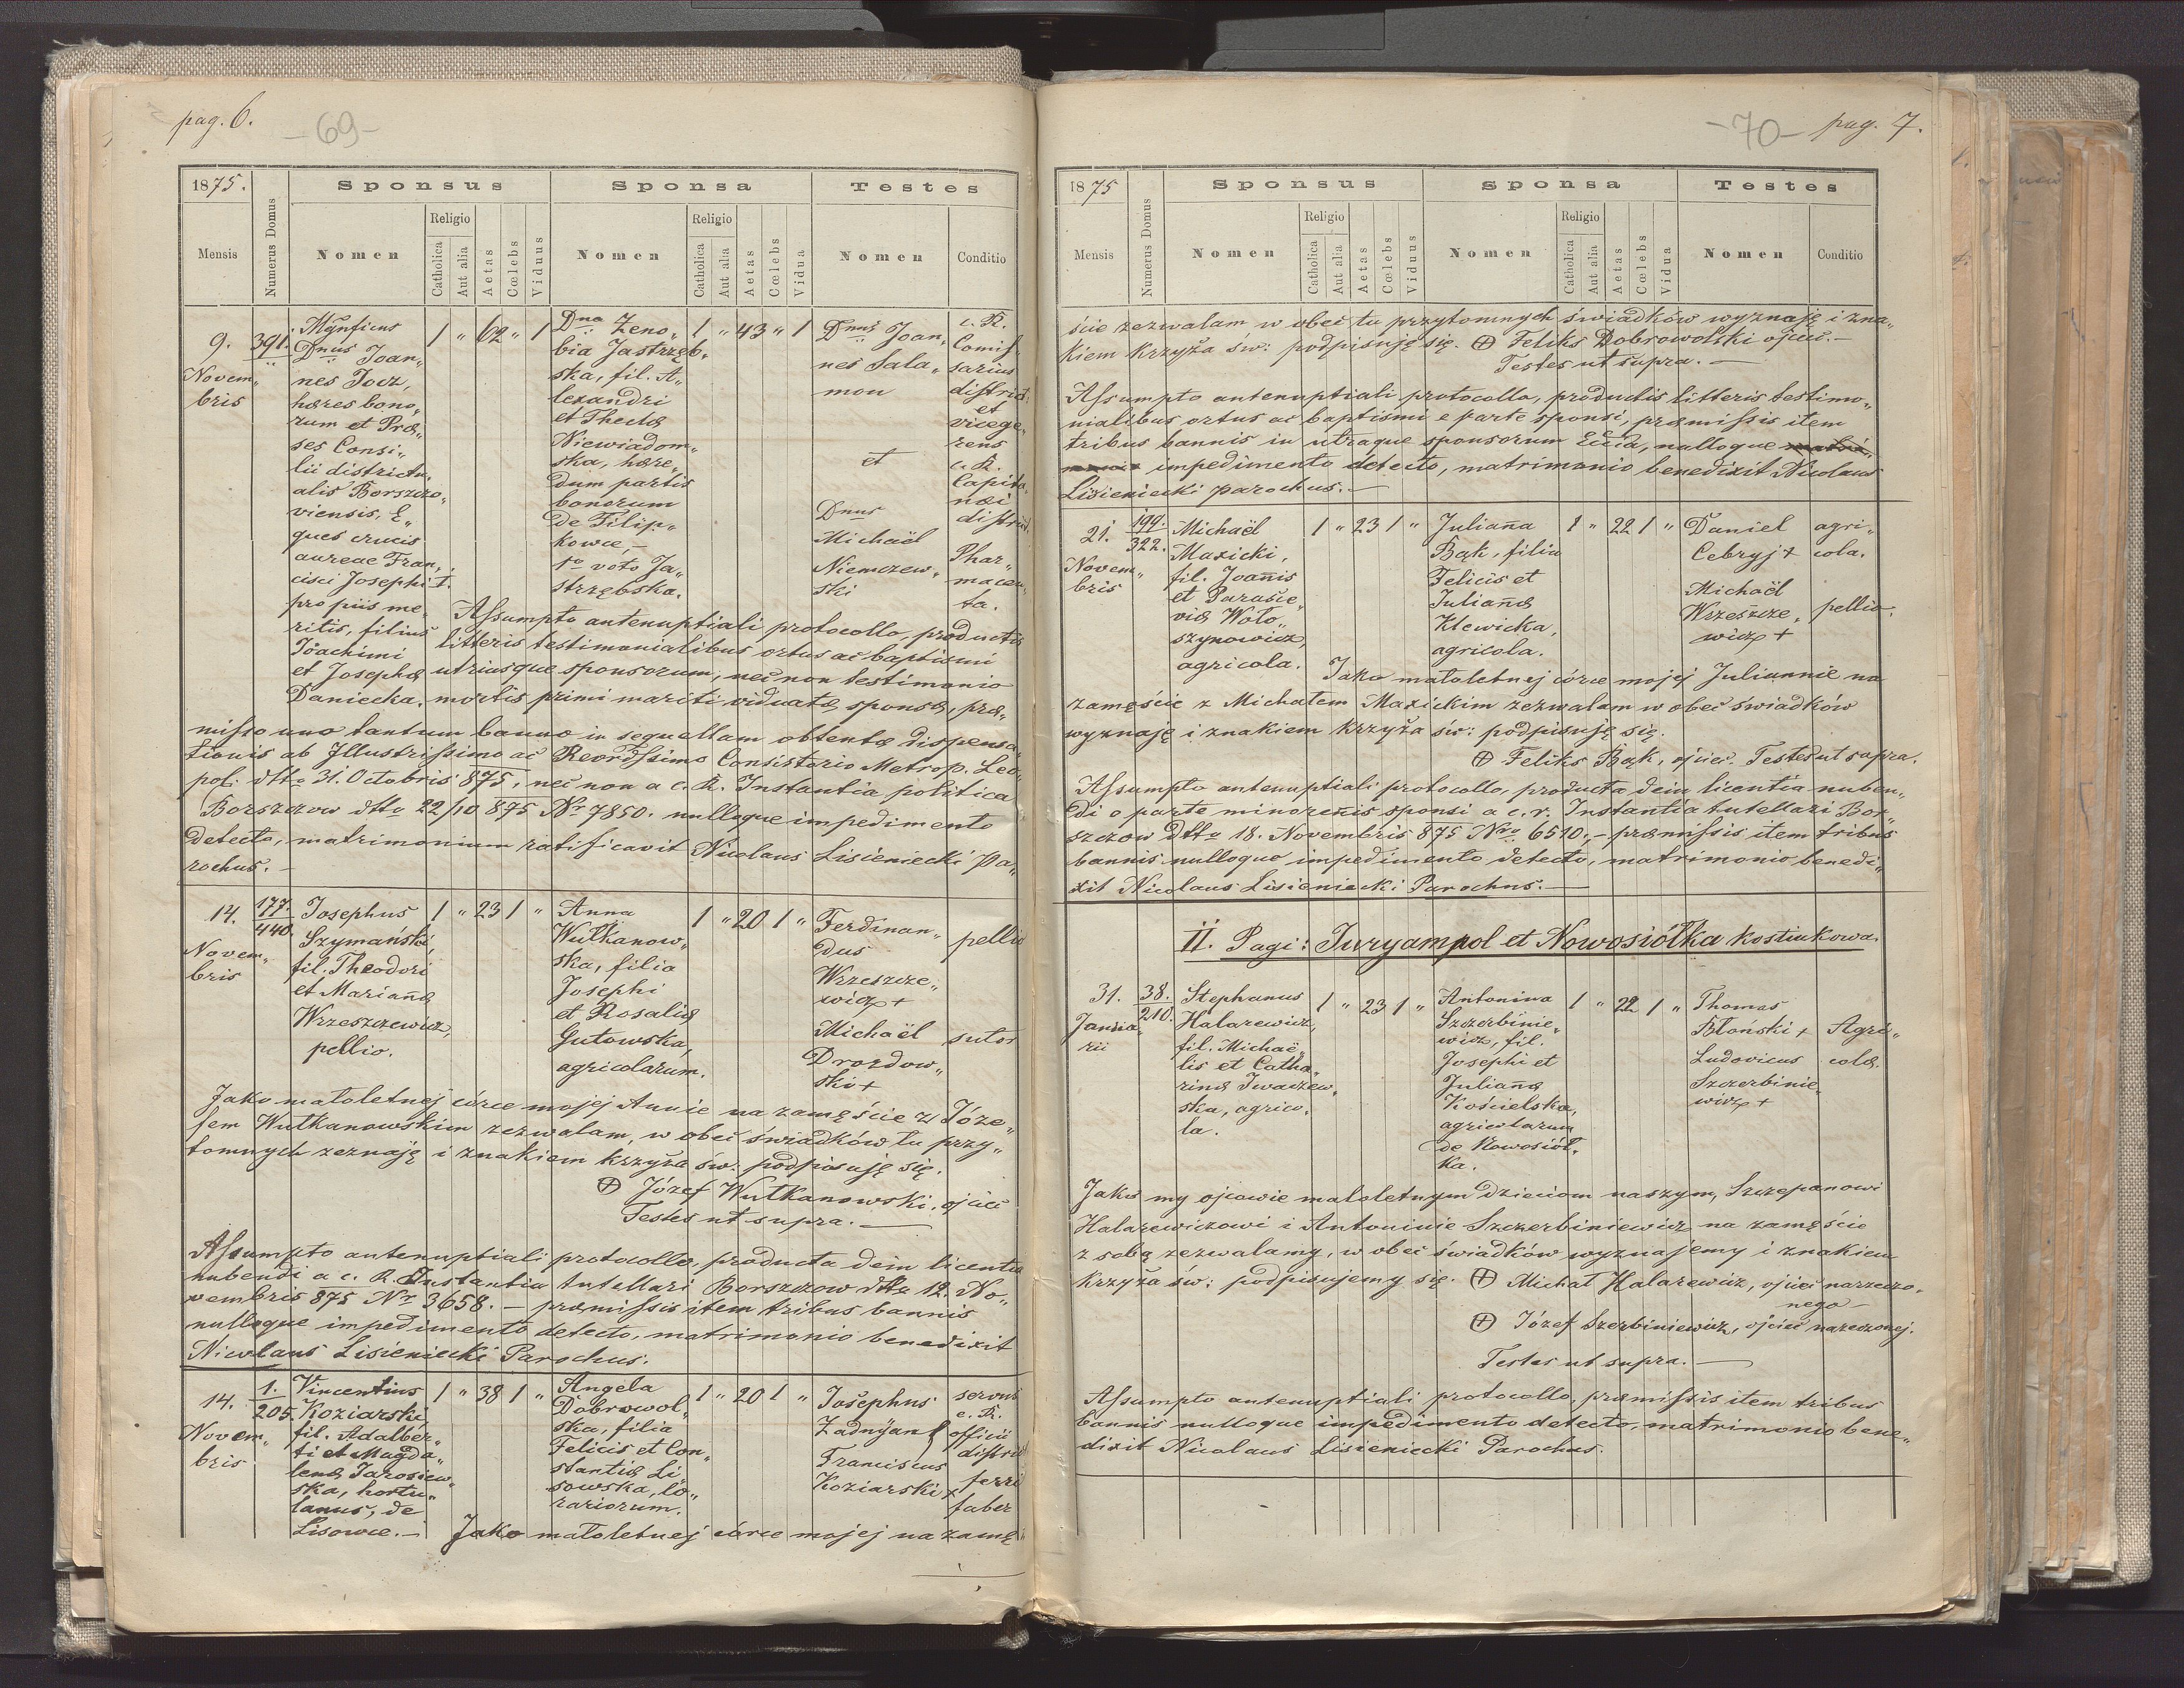 pag. 6.
-69-
1875.
Sponsus
Sponsa
Testes
Mensis
Numerus Domus
Nomen
Religio
Catholica
Aut alia
Aetas
Cœlebs
Viduus
Nomen
Religio
Catholica
Aut alia
Aetas
Cœlebs
Vidua
Nomen
Conditio
9.
Novem„
bris
391.
Mgnficus
Dnus Joan„
nes Jocz,
hæres bono„
rum et Præ„
ses Consi„
lii districtu„
alis Borszczo„
viensis, E„
ques crucis
aureae Fran„
cisci Josephi I.
pro piis me„
ritis, filius
Joachimi
et Josephæ
Daniecka.
1 „ 62 „ 1
Dna Zeno„
bia Jastrzęb„
ska, fil. A„
lexandri
et Theclæ
Niewiadom„
ska, hære„
dum partis
bonorum
de Filip„
kowce, –
1o voto Ja„
strzębska.
1 „ 43 „ 1
Dnus Joan„
nes Sala„
mon
et
Dnus
Michaël
Niemczew„
ski
c. R.
Comis„
sarius
district.
et
vicege„
rens
c. R.
Capita„
nei
district.
Phar„
maceu„
ta.
Assumpto antenuptiali protocollo, productis
litteris testimonialibus ortus ac baptismi
utriusque sponsorum, nec non testimonio
mortis primi mariti viduatæ sponsæ, præ„
misso uno tantum banno in sequellam obtentæ dispensa„
tionis ab Illustrissimo ac Reverdssimo Consistorio Metrop. Leo„
pol: dtto 31. Octobris 875, nec non a c. R. Instantia politica
Borszczow dtto 22/10 875 Nr 7850. nulloque impedimento
detecto, matrimonium ratificavit Nicolaus Lisieniecki Pa„
rochus. –
14.
Novem„
bris
177.
440.
Josephus
Szymański,
fil. Theodori
et Mariannæ
Wrzeszczewicz,
pellio.
1 „ 23 1 „
Anna
Wutkanow„
ska, filia
Josephi
et Rosaliæ
Gutowska,
agricolarum.
1 „ 20 1 „
Ferdinan„
dus
Wrzeszcze„
wicz +
Michaël
Drozdow„
ski +
pellio
sutor
Jako małoletnej córce mojej Annie na zamęście z Józe„
fem Wutkanowskim zezwalam, w obec świadków tu przy„
tomnych zeznaję i znakiem krzyża św: podpisuję się.
⊕ Józef Wutkanowski, ojciec
Testes ut supra. —
Assumpto antenuptiali protocollo, producta dein licentia
nubendi a c. R. Instantia tutellari Borszczow dtto 12. No„
vembris 875 Nr 3658. – præmissis item tribus bannis
nulloque impedimento detecto, matrimonio benedixit
Nicolaus Lisieniecki Parochus.
14.
Novem„
bris
1.
205.
Vincentius
Koziarski,
fil. Adalber„
ti et Magda„
lenæ Jarosiew„
ska, hortu„
lanus, de
Lisowce. –
1 „ 38 1 „
Angela
Dobrowol„
ska, filia
Felicis et Con„
stantiæ Li„
sowska, lo„
rariorum.
1 „ 20 1 „
Josephus
Zadnÿan
Franciscus
Koziarski +
servus
c. R.
officii
district
ferri
faber
Jako małoletnej córce mojej na zamę„
-70-
pag. 7.
1875
Sponsus
Sponsa
Testes
Mensis
Numerus Domus
Nomen
Religio
Catholica
Aut alia
Aetas
Cœlebs
Viduus
Nomen
Religio
Catholica
Aut alia
Aetas
Cœlebs
Vidua
Nomen
Conditio
ście zezwalam w obec tu przytomnych świadków wyznaję i zna„
kiem krzyża św: podpisuję się. ⊕ Feliks Dobrowolski ojciec. –
Testes ut supra. —
Assumpto antenuptiali protocollo, productis litteris testimo„
nialibus ortus ac baptismi e parte sponsi, præmissis item
tribus bannis in utraque sponsorum Eccla, nulloque
impedimento detecto, matrimonio benedixit Nicolaus
Lisieniecki parochus. –
21.
Novem„
bris
199.
322.
Michaël
Maxicki,
fil. Joannis
et Parasce„
viæ Woło„
szynowicz,
agricola.
1 „ 23 1 „
Julianna
Bąk, filia
Felicis et
Juliannæ
Klewicka,
agricola.
1 „ 22 1 „
Daniel
Cebryj +
Michaël
Wrzeszcze„
wicz +
agri„
cola.
pellio.
Jako małoletnej córce mojej Juliannie na
zamęście z Michałem Maxickim zezwalam w obec świadków
wyznaję i znakiem krzyża św: podpisuję się.
⊕ Feliks Bąk, ojciec. Testes ut supra.
Assumpto antenuptiali protocollo, producta dein licentia nuben„
di o parte minorenis sponsi a c. r. Instantia tutellari Bor„
szczow dtto 18. Novembris 875 Nro 6510. – præmissis item tribus
bannis nulloque impedimento detecto, matrimonio benedi„
xit Nicolaus Lisieniecki Parochus. —
II. Pagi: Juryampol et Nowosiółka kostiukowa.
31.
Janua„
rii
38.
210.
Stephanus
Halarewicz,
fil. Michaë„
lis et Catha„
rinæ Iwaczew„
ska, agrico„
la.
1 „ 23 1 „
Antonina
Szczerbinie„
wicz, fil.
Josephi et
Juliannæ
Kościelska,
agricolarum
de Nowosiół„
ka.
1 „ 22 1 „
Thomas
Błoński +
Ludovicus
Szczerbinie„
wicz +
Agri„
colæ.
Jako my ojcowie małoletnym dzieciom naszym, Szczepanowi
Halarewiczowi i Antoninie Szczerbiniewicz na zamęście
z sobą zezwalamy, w obec świadków wyznajemy i znakiem
krzyża św: podpisujemy się. ⊕ Michał Halarewicz, ojciec narzeczo„
nego –
⊕ Józef Szerbiniewicz, ojciec narzeczonej.
Testes ut supra. —
Assumpto antenuptiali protocollo, præmissis item tribus
bannis nulloque impedimento detecto, matrimonio bene„
dixit Nicolaus Lisieniecki Parochus.